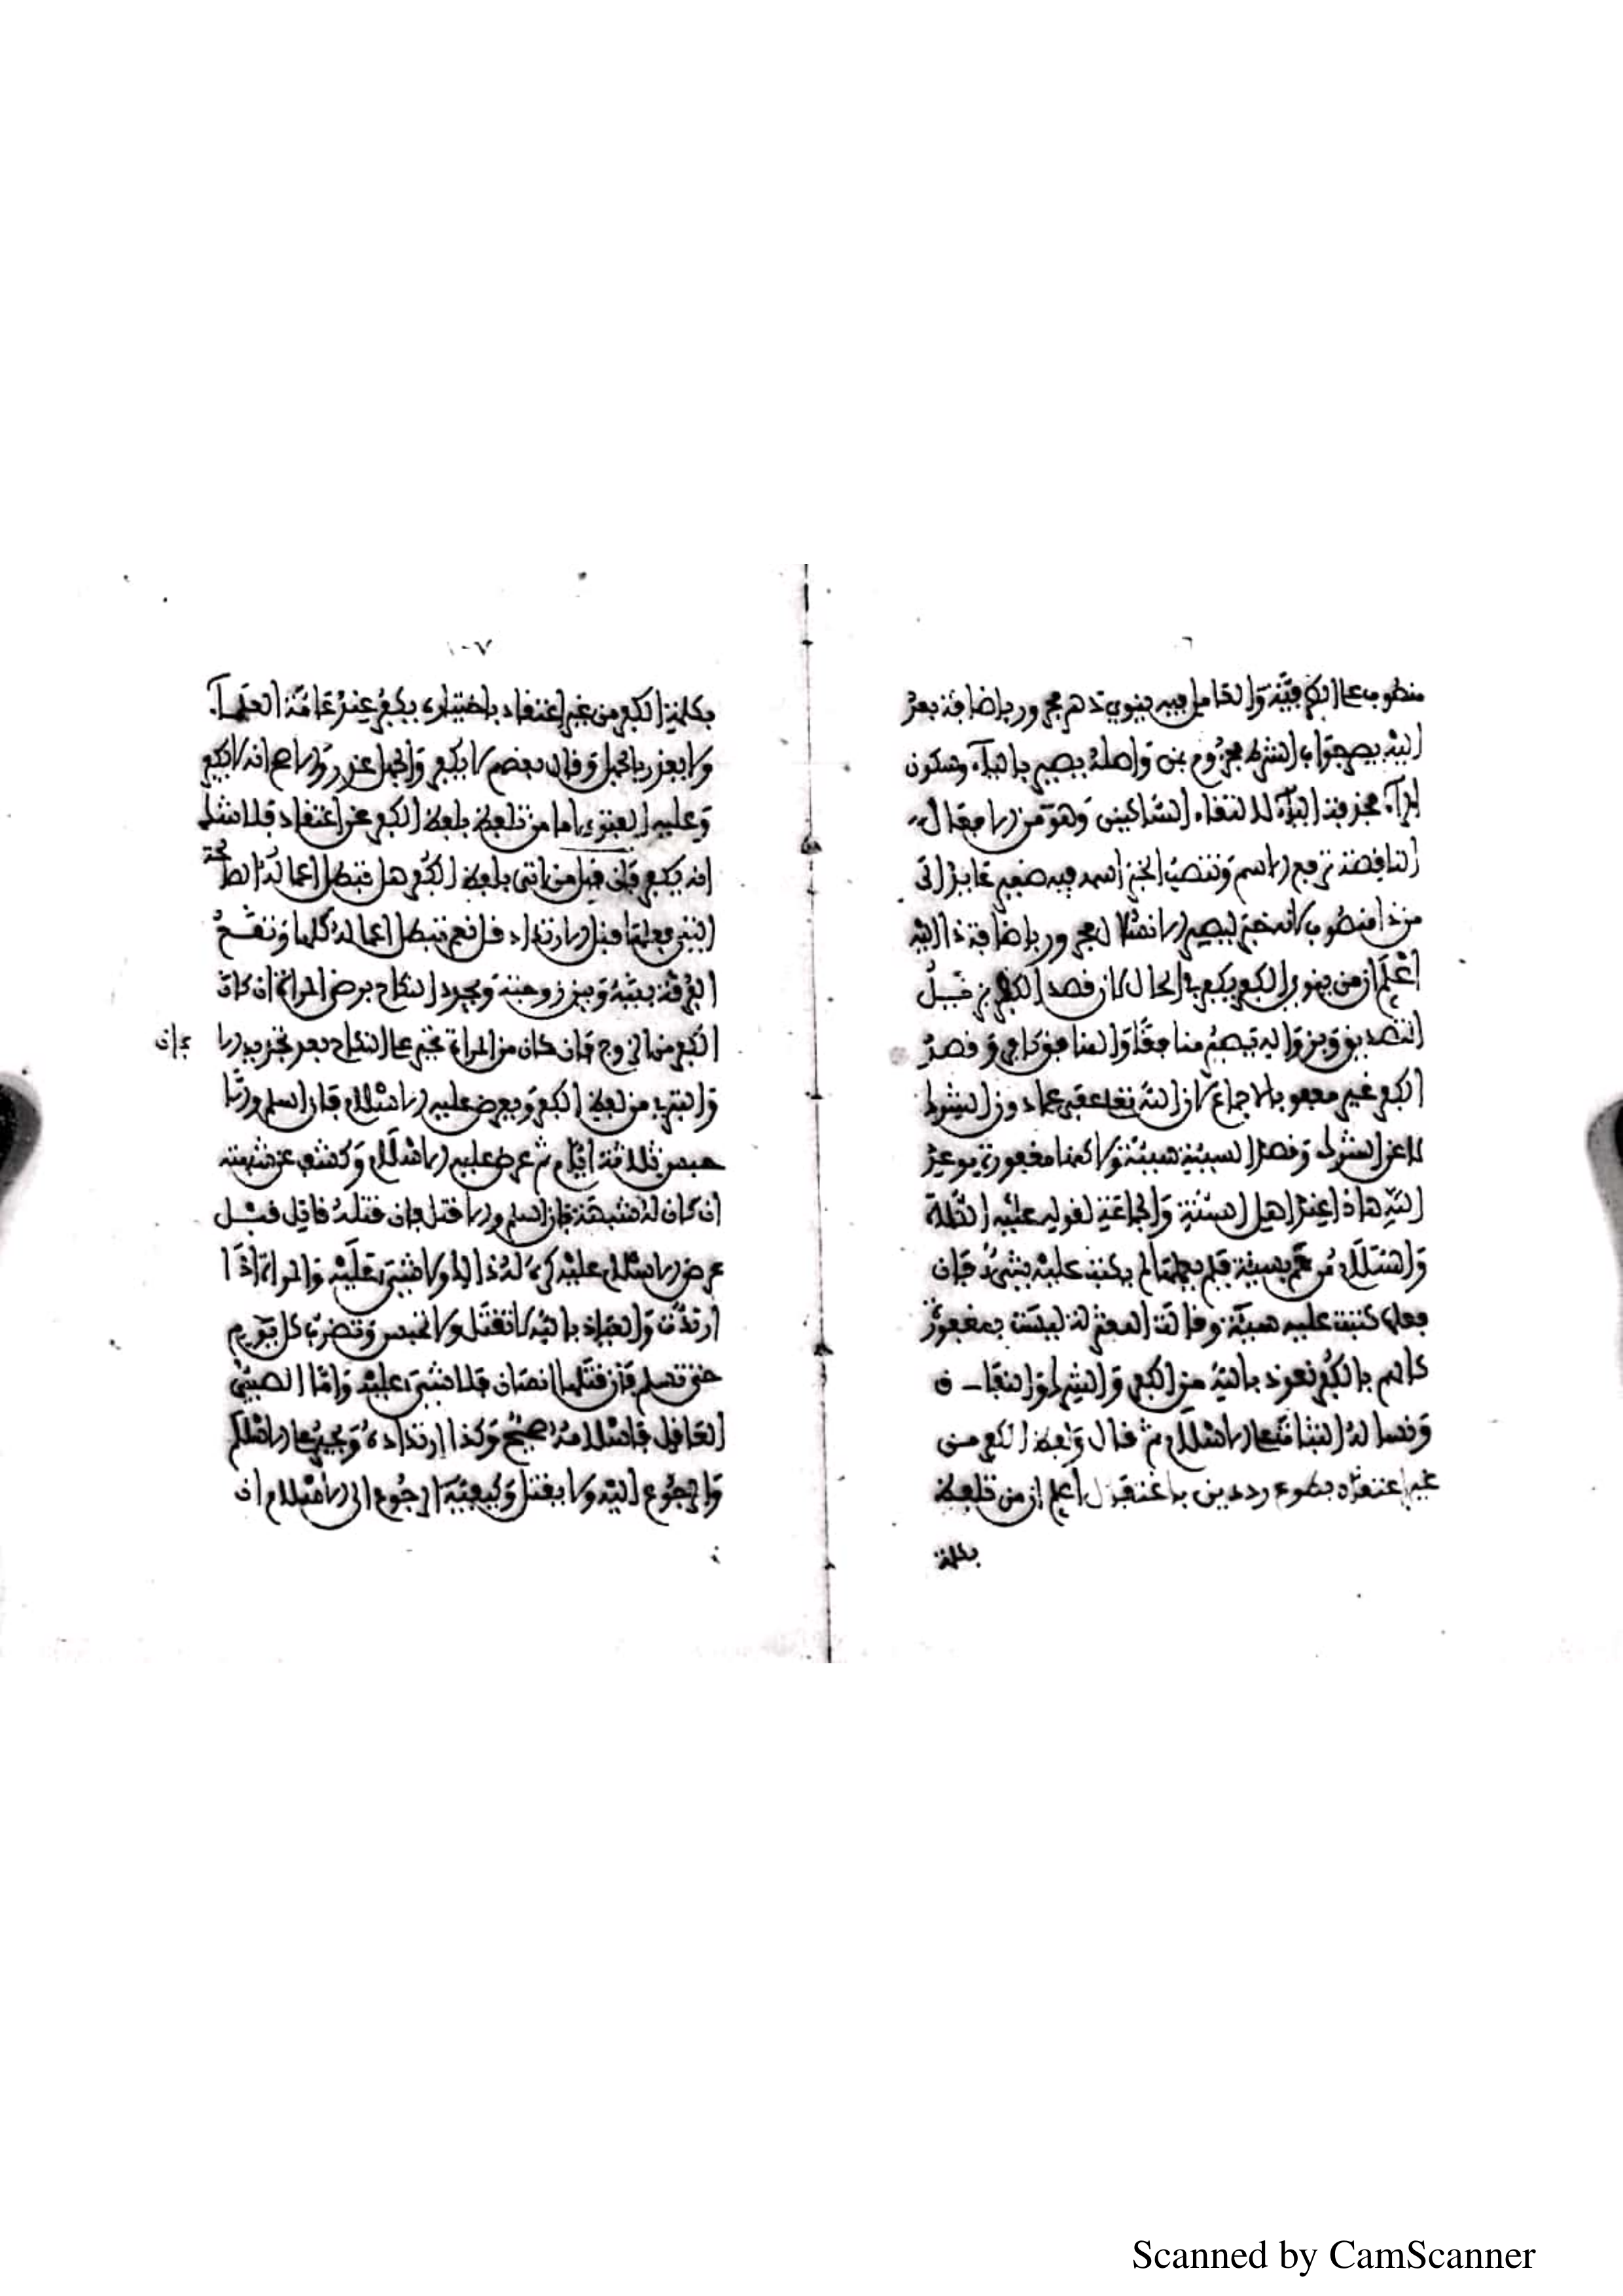 منصوب على الظرفية والعامل فيه ينوي دهر مجرور بإضافة بعد
إليه يصر جواب الشرط مجزوم بمن وأصله يصير بالياء وسكون
الراء فحذفت الياء لالتقاء الساكنين وهو من الأفعال
الناقصة ترفع الاسم وتنصب الخبر اسمه فيه ضمير عائد إلى
من ذا منصوب لأنه خبر ليصير الانسلال مجرور بإضافة ذا إليه
اعلم أن من ينوي الكفر يكفر في الحال لأن قصد الكفر
التصديق ويزواله يصير منافقا والمنافق كافر وقصد
الكفر غير معفو بالإجماع لأن الله تعالى عفى عما دون الشرك
لا عن الشرك وقصد السيئة سيئة لكنها مغفورة
هذا عند أهل السنة والجماعة لقوله عليه الصلاة
والسلام من هم بسيئة فلم يعملها لم يكتب عليه شيء فإن
فعلها كتبت عليه سيئة وقالت المعتزلة ليست بمغفورة
كالهم بالكفر نعوذ بالله من الكفر والشرك والنفاق
ونسأله الثبات على الإسلام ثم قال ولفظ الكفر من
غير اعتقاد بطوع رد دين باغتفال اعلم أن من تلفظ
بكلمة
١٠٧
بكلمة الكفر من غير اعتقاد باختياره يكفر عند عامة العلماء
ولا يعذر بالجهل وقال بعضهم لا يكفر والجهل عذر والأصح أنه لا يكفر
وعليه الفتوى أما من تلفظ بلفظ الكفر عن اعتقاد فلا شك
أنه يكفر فإن قيل من أتى بلفظ الكفر هل تبطل أعماله الصالحة
التي فعلها قبل الارتداد قل نعم تبطل أعماله كلها وتقع
الفرقة بينه وبين زوجته ويجدد النكاح برضى المرأة إن كان
الكفر من الزوج فإن كان من المرأة تجبر على النكاح بعد تجديد الا
يمان
والتبري من لفظ الكفر ويعرض عليه الإسلام فإن أسلم وإلا
حبس ثلاثة أيام ثم عرض عليه الإسلام وكشف عن شبهته
إن كان له شبهة فإن أسلم وإلا قتل فإن قتله قاتل قبل
عرض الإسلام عليه كره له ذلك ولا شيء عليه والمرأة إذا
ارتدت والعياذ بالله لا تقتل ولا تحبس وتضرب كل يوم
حتى تسلم فإن قتلها إنسان فلا شيء عليه وأما الصبي
العاقل فإسلامه صحيح وكذا ارتداده ويجبر على الإسلام
والرجوع إليه ولا يقتل وكيفية الرجوع إلى الإسلام أن
Scanned by CamScanner